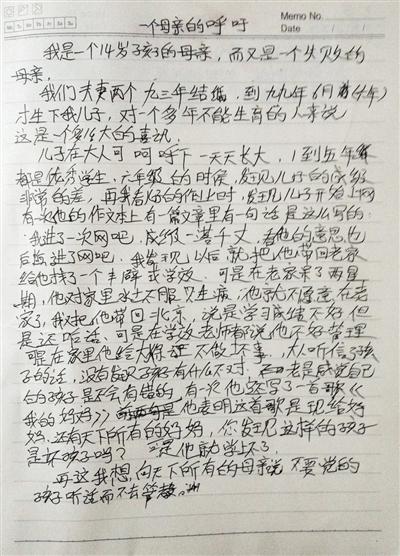 一个母亲的呼吁
Memo No.
Date / /
我是一个14岁孩子的母亲，而又是一个失败的
母亲，
我们夫妻两个九三年结婚，到九九年6月
才生下我儿子，对一个多年不能生育的人来说
这是一个多么大的喜讯，
儿子在大人呵呵呼下一天天长大，1到五年级
都是优秀学生，六年级的时候，发现儿子的成绩
非常的差，再我看他的作业时，发现儿子开始上网
有次他的作文本上有一篇文章里有一句话是这么写的：
我进了一次网吧，成绩一落千丈，看他的意思也
后悔进了网吧，我发现以后就把他带回老家
给他找了一个学校，可是在老家呆了两星
期，他对家里水土不服只生病，他就不愿意在老
家了，我又把他带回北京，说是学习成绩不好但
是还可是在学校老师都说他不好管理
可是在家里他给大人保证不做坏事，大人听信了孩
子的话，没有发现孩子有什么不对，老是感觉自己
的孩子是不会有错的，有次他还写了一首歌《
我的妈妈》他表明这首歌是现给妈
妈，还有天下所有的妈妈，你发现这样的孩子
是坏孩子吗？他就学坏了，
再这我想，向天下所有的母亲说不要觉的
孩子听话而不去管教。